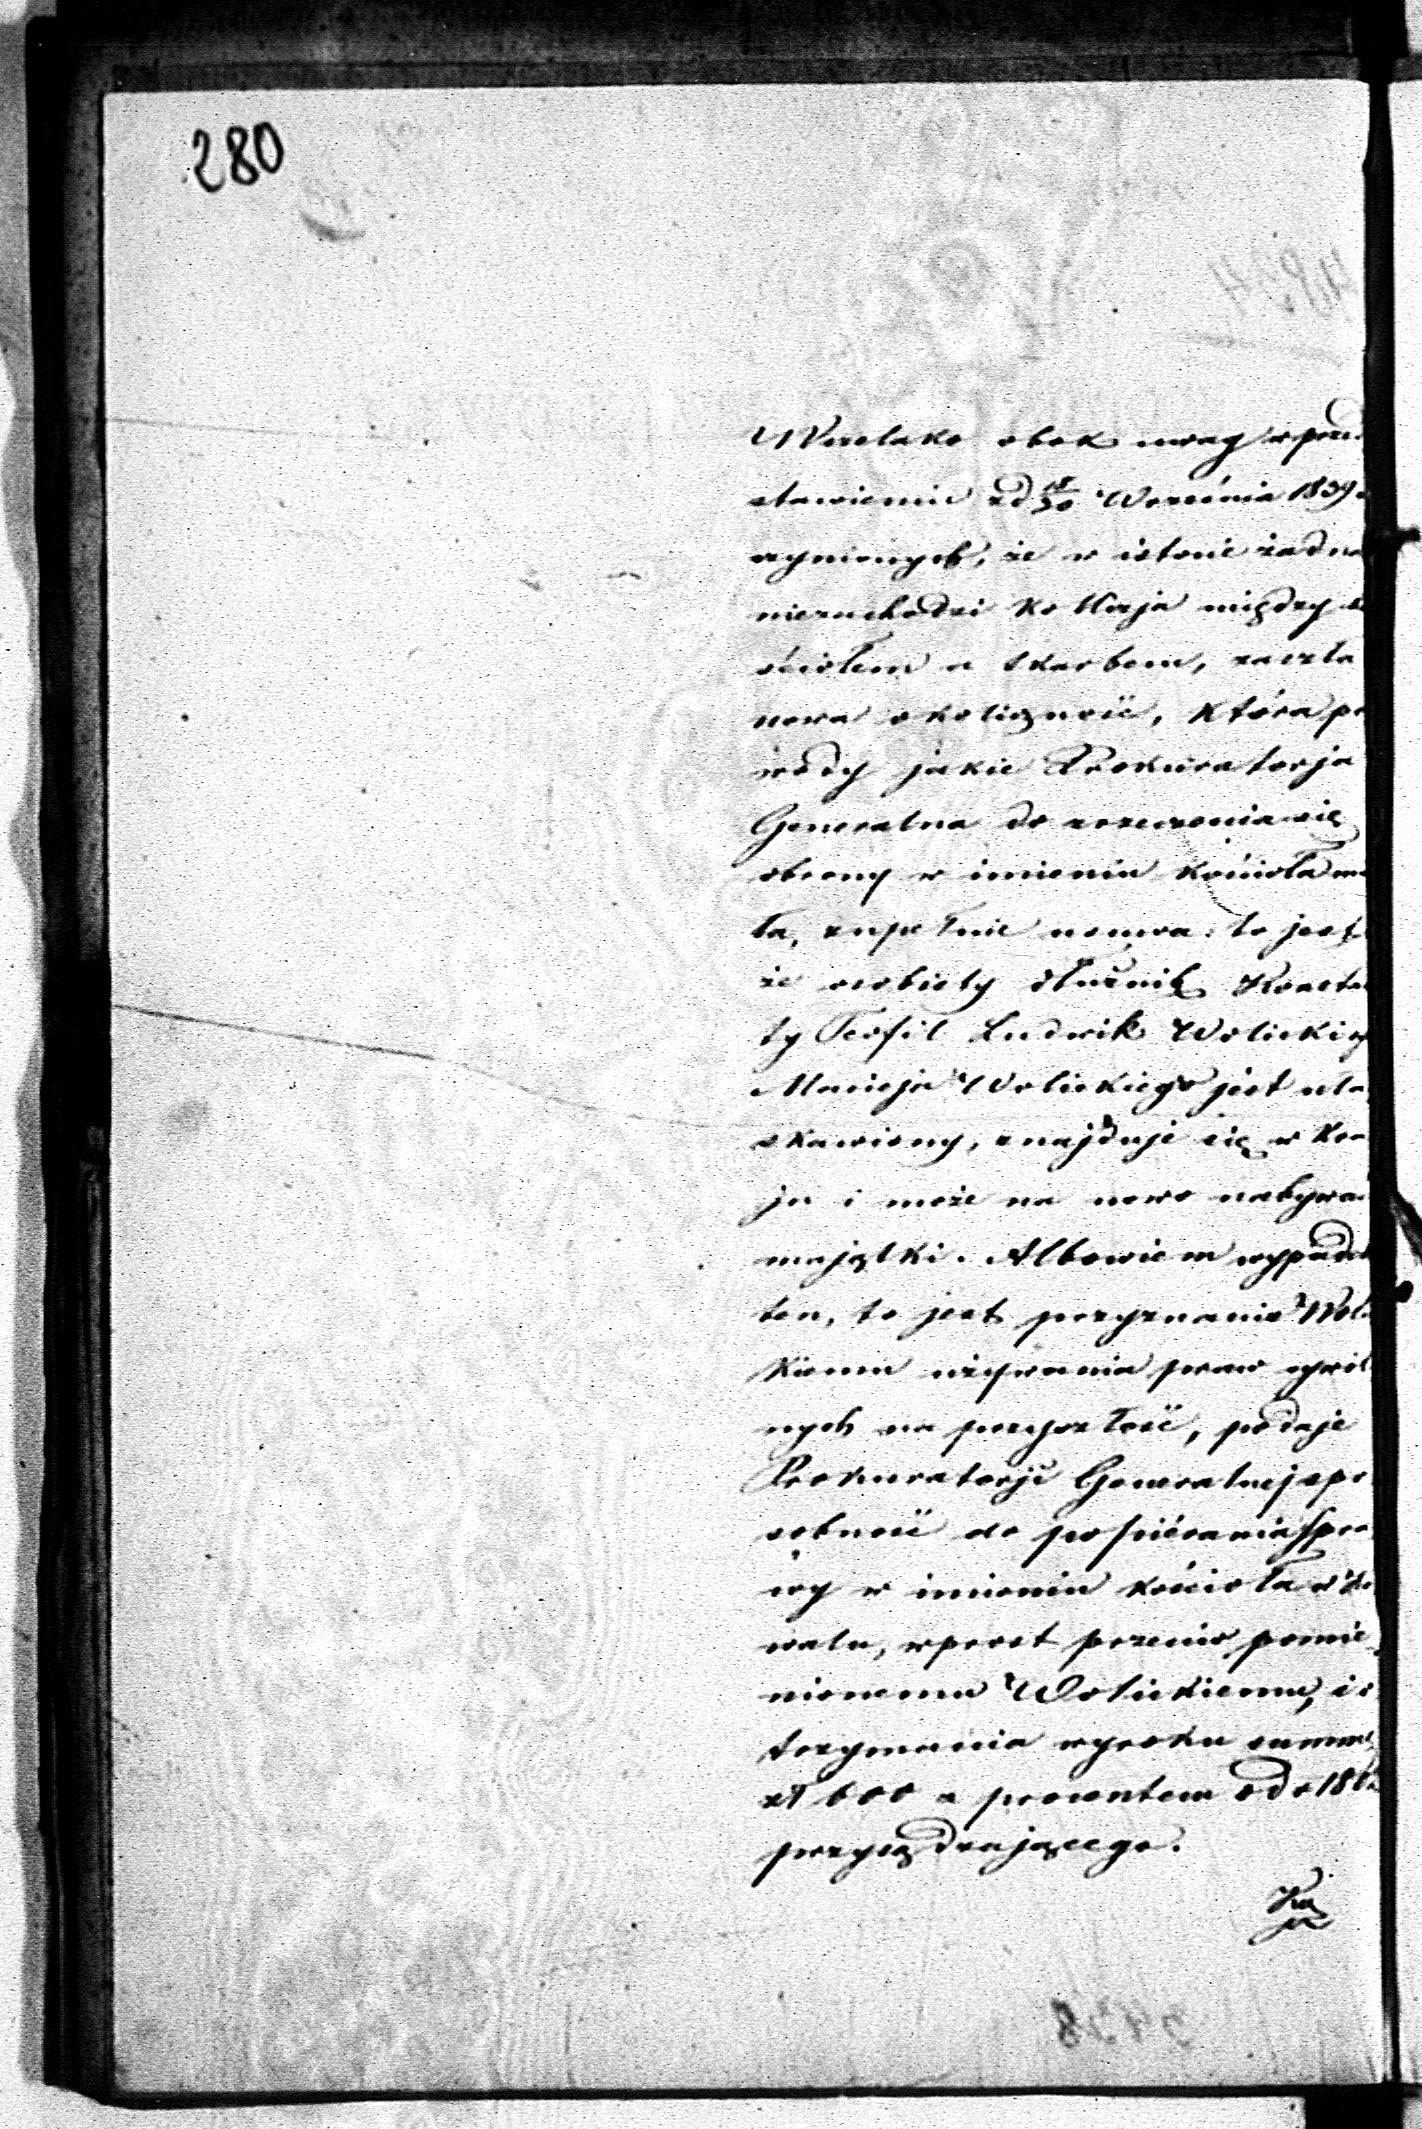 280
Wszelako obok uwag w przed
stawieniu z d 18/30 Września 1839 r
czynionych, że w istocie żadna
niezachodzi kollizja między ko
ściołem a skarbem, zaszła
nowa okoliczność, która po
wody jakie Prokuratorja
Generalna do zrzeczenia się
obrony w imieniu kościoła mia
ła, zupełnie usuwa: to jest
że osobisty dłużnik Konstan
ty Teofil Ludwik Wolicki syn
Macieja Wolickiego jest uła
skawiony, znajduje się w kra
ju i może na nowo nabywać
majątki. Albowiem wypadek
ten, to jest przyznanie Wolic
kiemu używania praw cywil
nych na przyszłość, podaje
Prokuratorji Generalnej spo
sobność do popiérania spra
wy w imieniu kościoła w Ko
walu, wprost przeciw pomie
nionemu Wolickiemu, i o
trzymania wyroku summę
zł 600 z procentem od r 18
przysądzającego.